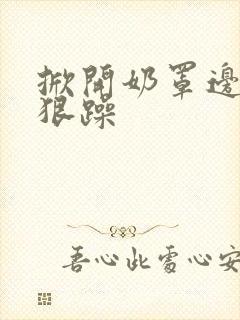 掀開奶罩邊
狠躁
吾心此處心安